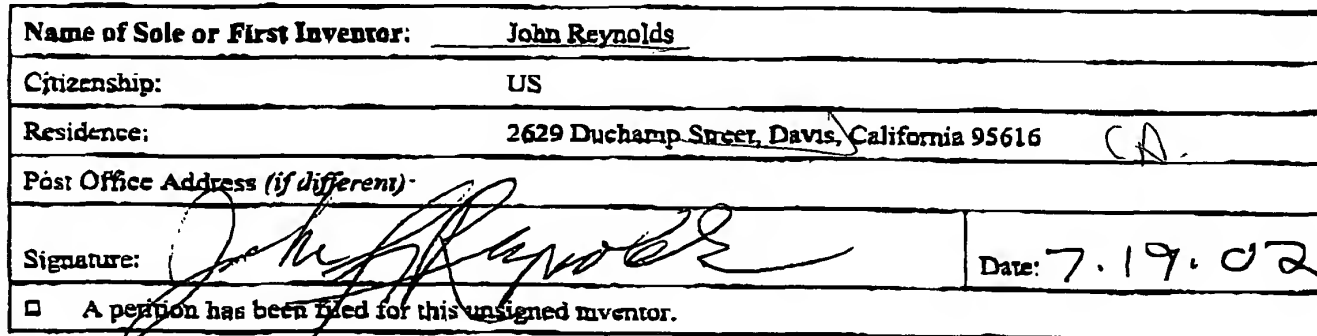 Name of Sole or First Inventor: John Reynolds
Citizenship: US
Residence: 2629 Duchamp Street, Davis, California 95616 CA.
Post Office Address (if different)
Signature: John Reynolds
Date: 7.19.02
□ A petition has been filed for this unsigned inventor.